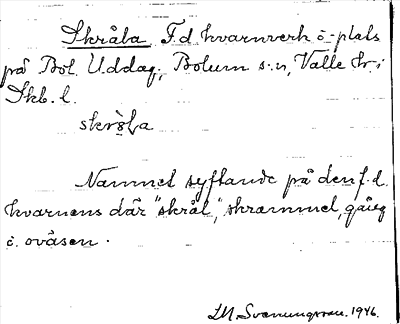 Skråla F.d. kvarnverk o. -plats
på Bol. Uddag., Bolum s:n, Valle hr.
Skb. l.
skrò̤la
Namnet syftande på den f.d.
kvarnens där "skrål", skrammel,
o. oväsen.
I.M. Svenungsson. 1946.